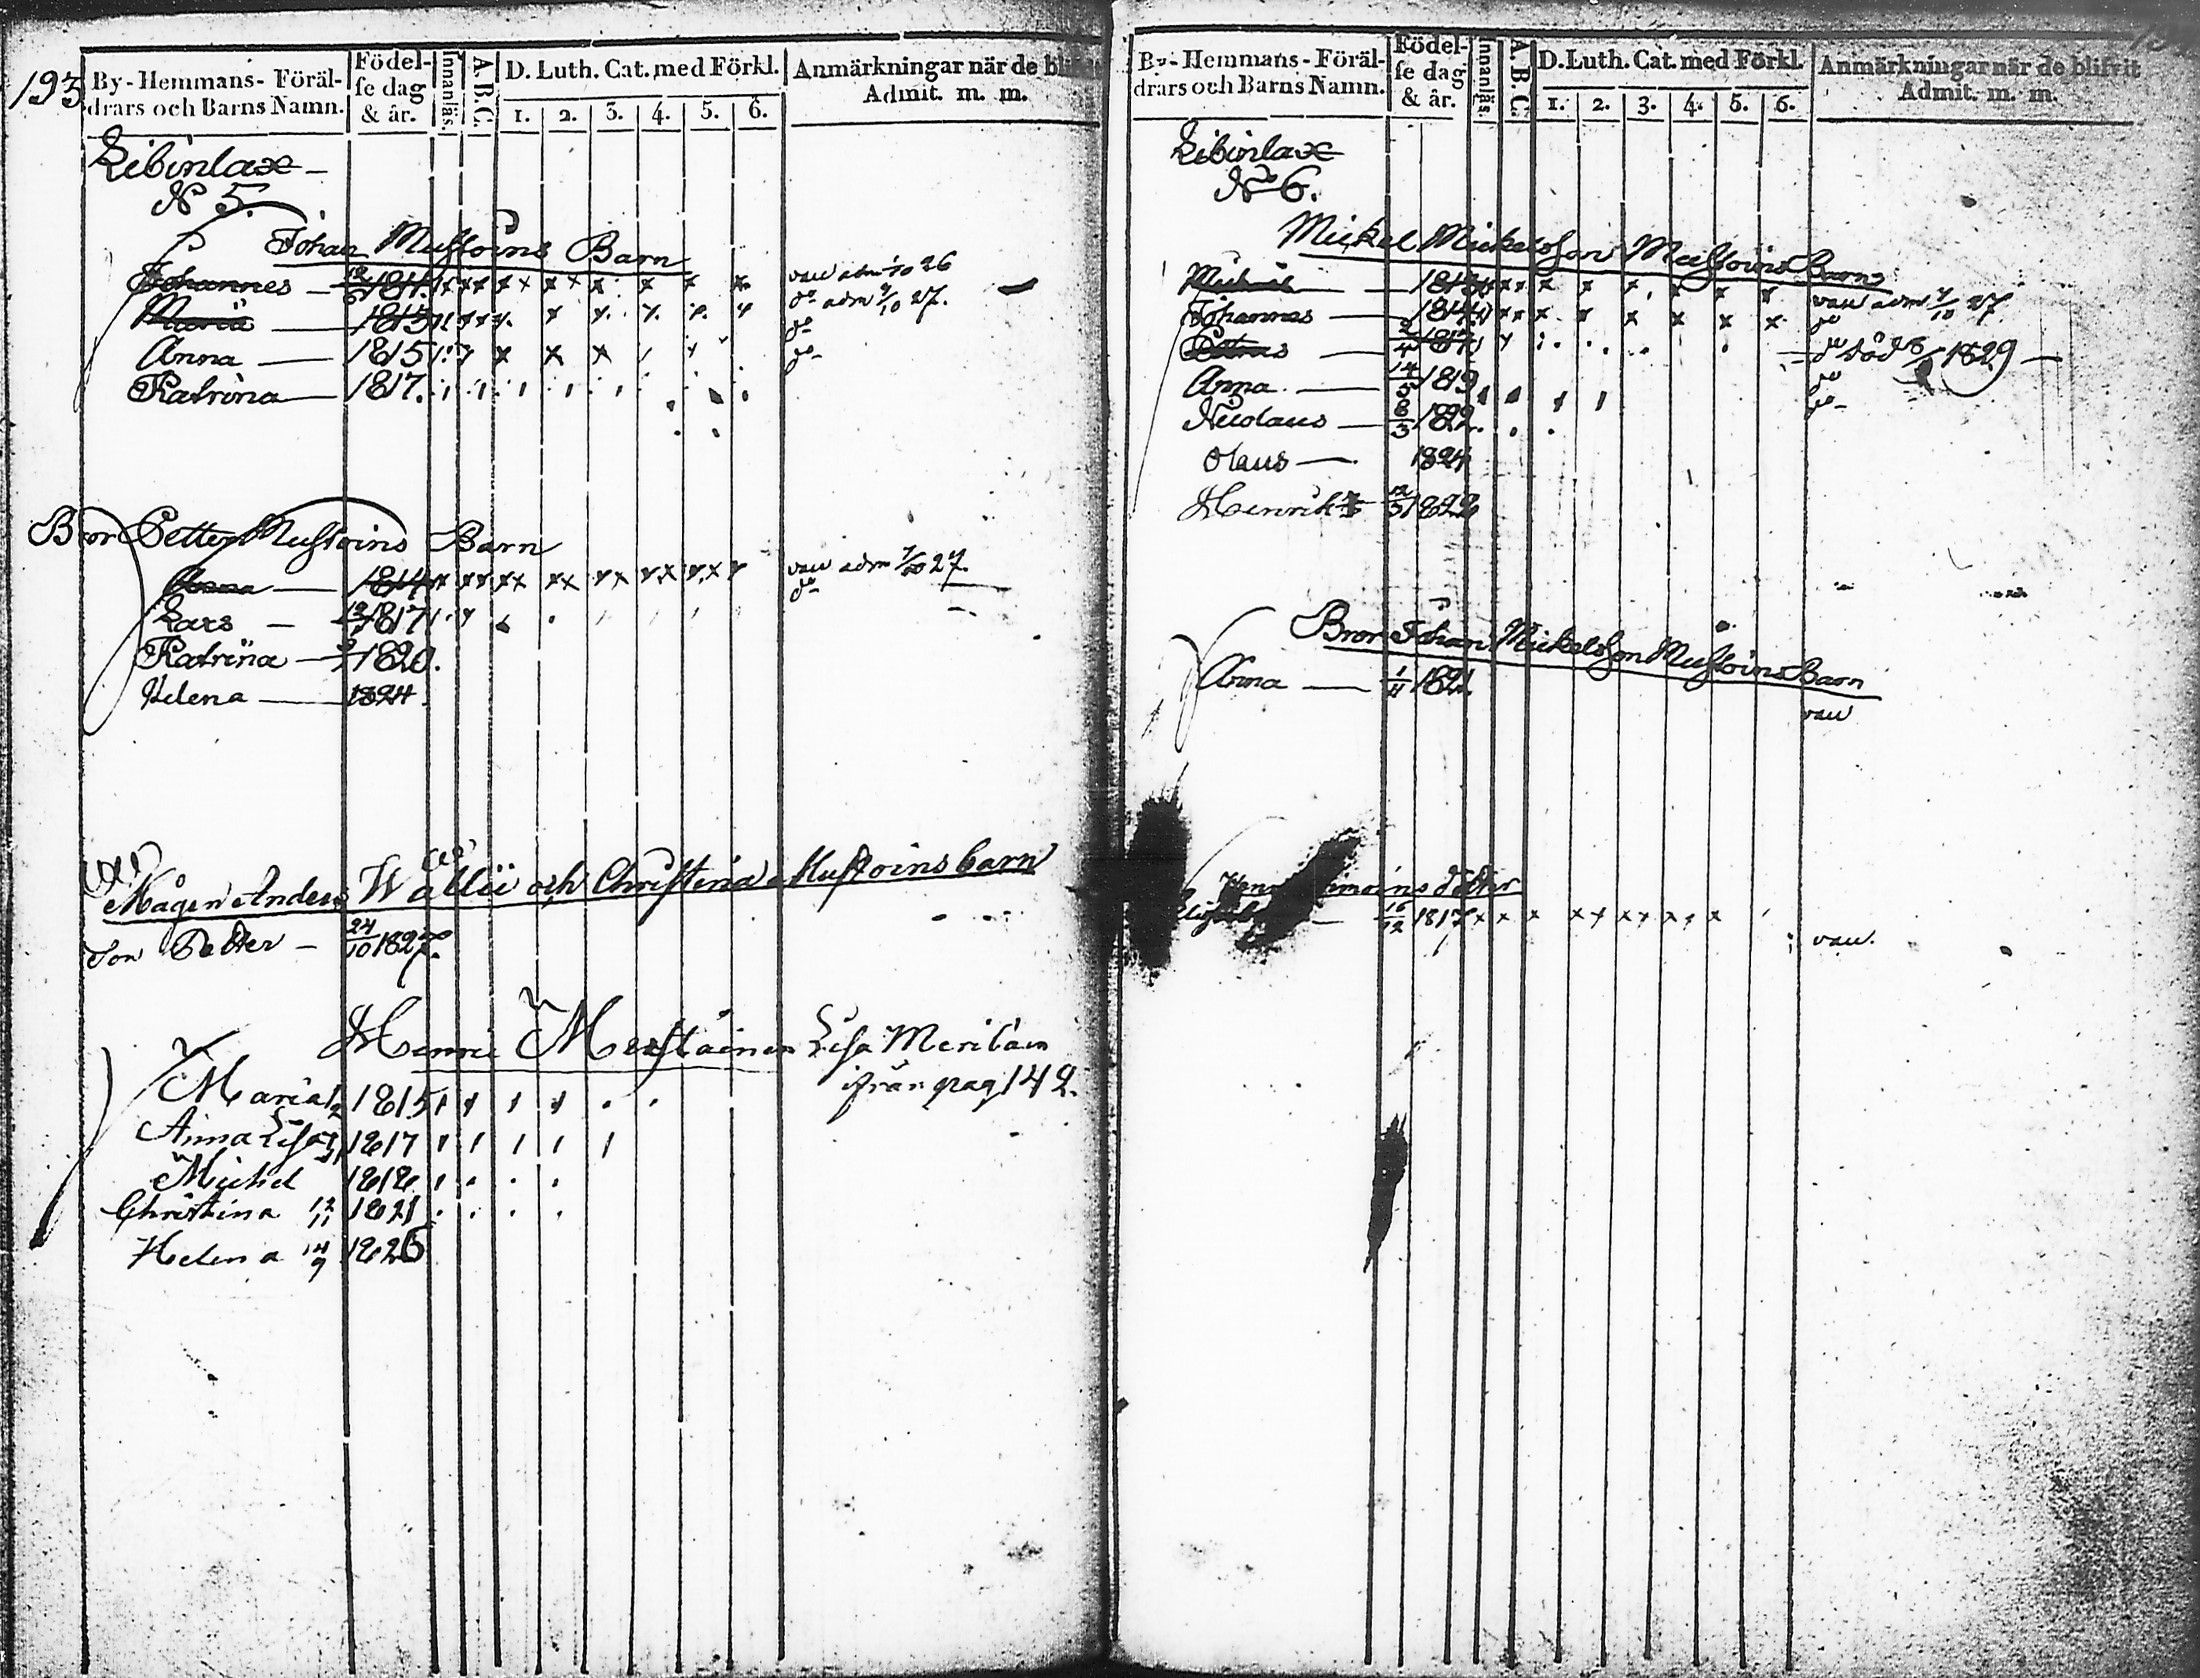 193
By-Hemmans-Föräl-
drars och Barns Namn.
Födel-
se dag
& år.
Innanläs.
A.B.C.
D. Luth. Cat. med Förkl.
1. 2. 3. 4. 5. 6.
Anmärkningar när de
Admit. m. m.
Libinlax
N 5.
Johan Mustoins Barn
Johannes 1811. vacc adm 26
Maria 1813 do adm 7/10 27.
Anna 1815 do
Katrina 1817. do
Bror Petter Mustoins Barn
Anna 1814 vacc adm 7/10 27.
Lars 1817 do
Katrina 1820.
Helena 1824.
Mågen Anders Wallii och Christina Mustoins barn
Son Petter 24/10 1827.
Henric Mustoinen Lisa Meriläin
ifrån pag 142.
Maria 1815
Anna Lisa 1817
Michel 1818
Christina 12/11 1821
Helena 14/9 1826
By-Hemmans-Föräl-
drars och Barns Namn.
Födel-
se dag
& år.
Innanläs.
A.B.C.
D. Luth. Cat. med Förkl.
1. 2. 3. 4. 5. 6.
Anmärkningar när de blifvit
Admit. m. m.
Libinlax
No 6.
Mickel Mickelsson Mustoins Barn
Michel 1813 vacc adm 7/10 27.
Johannes 1814 do
Petrus 2/4 1817 do död 1829
Anna 14/5 1819 do
Nicolaus 6/3 1822. do
Olaus 1824
Henrik 12/5 1822
Bror Johan Mickelsson Mustoins Barn
Anna 1/11 1821. vacc
dotter
16/12 1817 vacc.